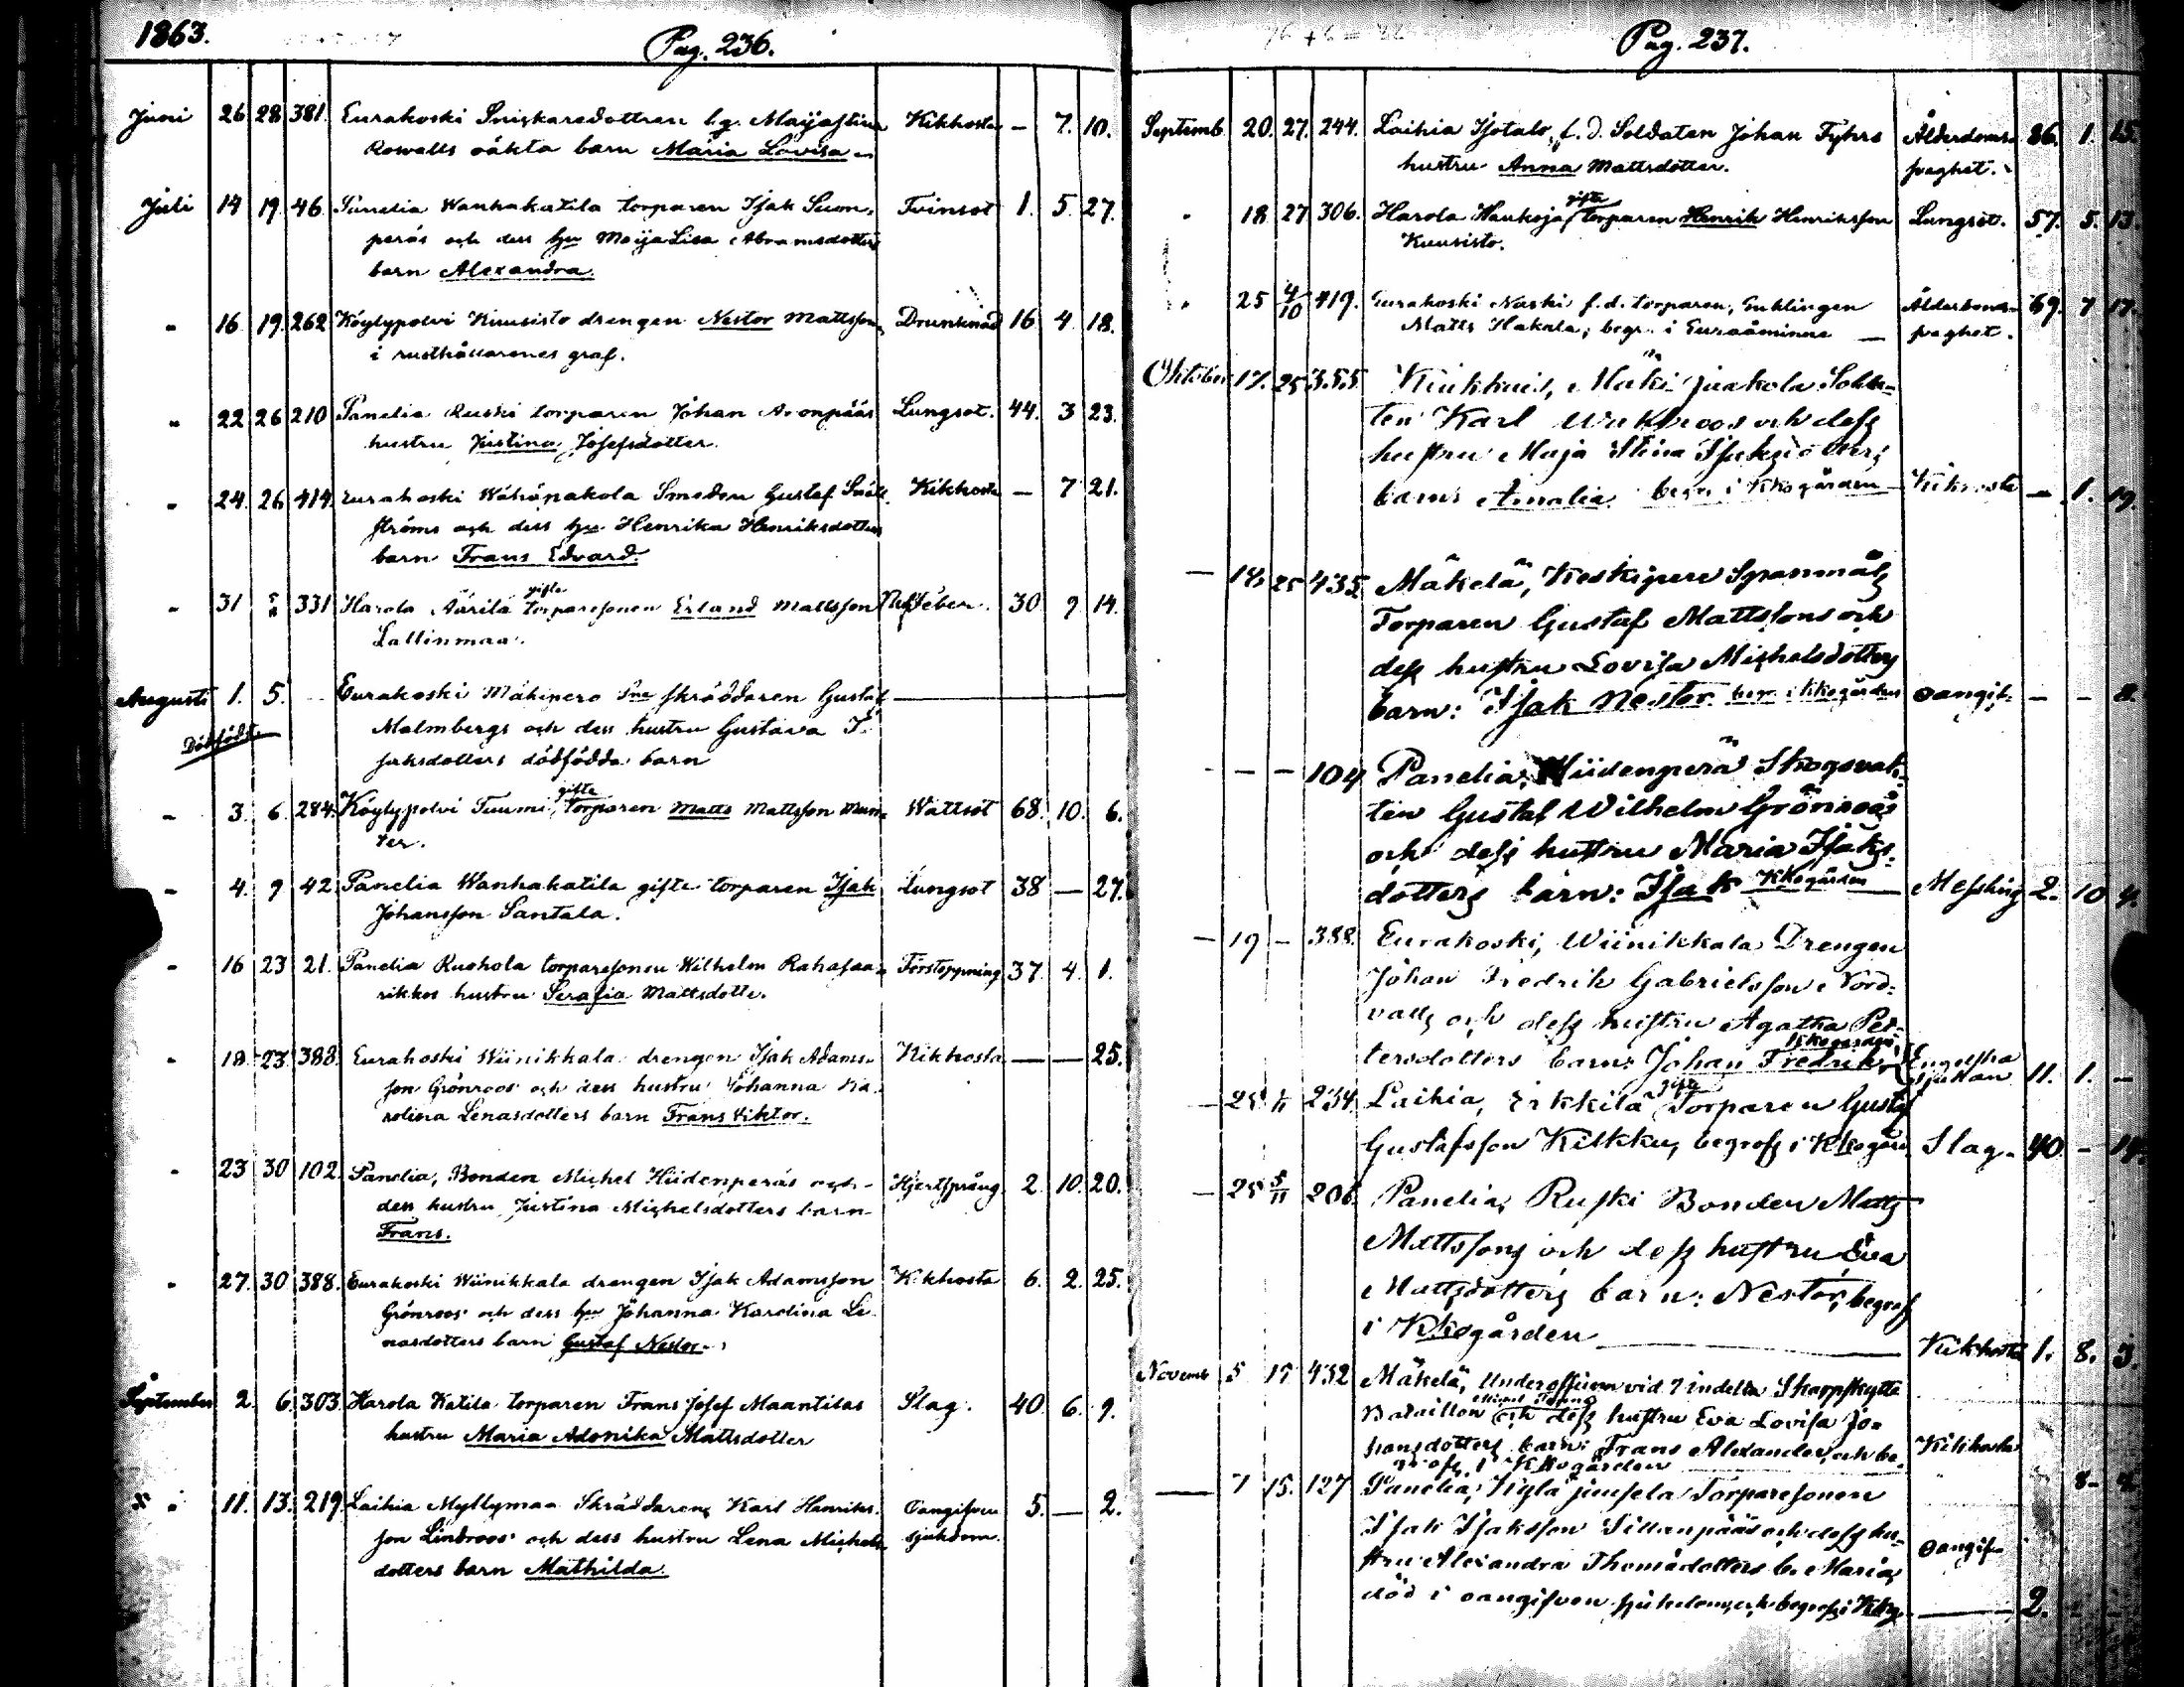 1863.
Pag. 236.
Juni 26 28 381. Eurakoski Snickaredottren l.g. Maijastina Kikhosta — 7. 10.
Rowalls oäkta barn Maria Lovisa
Juli 14 19. 46. Panelia Wanhakatila torparen Isak Suom- Tvinsot 1. 5. 27.
peräs och dess hu Maija Lisa Abramsdotters
barn Alexandra.
" 16. 19. 262 Köylypolvi Kuusisto drengen Nestor Mattsson Drunknad 16 4. 18.
i rusthållarenes graf.
" 22 26 210 Panelia Ruski torparen Johan Aronpääs Lungsot. 44. 3 23.
hustru Justina Josefsdotter.
" 24. 26 414. Eurakoski Wähäpakola Smeden Gustaf Snäll Kikhosta — 7 21.
ströms och dess hu Henrika Henriksdotters
barn Frans Edvard.
" 31 331 Harola Äärilä gifte torparesonen Erland Mattsson feber. 30 9 14.
Lallinmaa.
Augusti 1. 5. Eurakoski Mäkiperä skräddaren Gustaf
Dödfödt. Malmbergs och dess hustru Gustava I-
saksdotters dödfödda barn
" 3. 6. 284. Köylypolvi Tuumi gifte torparen Matts Mattsson Mun- Wattsot 68. 10. 6.
ter.
" 4. 9 42 Panelia Wanhakatila gifte torparen Isak Lungsot 38 — 27.
Johansson Santala.
" 16 23 21. Panelia Ruohola torparesonen Wilhelm Rahasaa- Förstoppning 37. 4. 1.
rikkos hustru Serafia Mattsdotte.
" 18. 23. 388. Eurakoski Wiinikkala drengen Isak Adams- Kikhosta — — 25.
son Grönroos och dess hustru Johanna Ka-
rolina Lenasdotters barn Frans Viktor.
" 23 30 102. Panelia, Bonden Michel Hiidenperäs och Hjertsprång 2. 10. 20.
dess hustru Justina Michelsdotters barn
Frans.
" 27. 30 388. Eurakoski Wiinikkala drengen Isak Adamsson Kikhosta 6. 2. 25.
Grönroos och dess hu Johanna Karolina Le-
nasdotters barn Gustaf Nestor.
September 2. 6. 303. Harola Katila torparen Frans Josef Maantilas Slag. 40. 6. 9.
hustru Maria Adonika Mattsdotter
x " 11. 13. 219. Laihia Myllymaa Skräddarens Karl Henriks- Oangifven 5. — 2.
son Lindroos och dess hustru Lena Michels- sjukdom.
dotters barn Mathilda.
Pag. 237.
Septemb. 20. 27. 244. Laihia Isotalo, f. d. Soldaten Johan Fyhrs Ålderdoms- 86. 1. 15.
hustru Anna Mattsdotter. svaghet.
" 18. 27 306. Harola Haukoja gifte torparen Henrik Henriksson Lungsot. 57. 5. 13.
Kuusisto.
" 25 4/10 419. Eurakoski Naski f.d. torparen, Enklingen Ålderdoms- 69. 7 17.
Matts Hakala, begr. i Euraåminne svaghet.
Oktober 17. 25 355. Kiukkais, Mäki-jaakola Solda-
ten Karl och dess
hustru Maja Stina Isaksdotters
barn Amalia begr. i Kkogården Kikhosta — 1. 19.
— 14. 25 435 Mäkelä, Keskiperä Spanmåls
Torparen Gustaf Mattssons och
dess hustru Lovisa Michelsdotters
barn: Isak Nestor begr. i Kkogården oangif. — — 8.
— — — 104 Panelia, Hiidenperä Skogsvak-
ten Gustaf Wilhelm Grönroos
och dess hustru Maria Isaks-
dotters barn: Isak Kkogården Messling 2. 10 4.
— 19 — 388. Eurakoski, Wiinikkala Drengen
Johan Fredrik Gabrielsson Nord-
valls och dess hustru Agatha Pet-
tersdotters barn: Johan Fredrik, Kkogården Engelska sjukan 11. 1. —
— 25 234 Laihia, Erkkilä gifte Torparen Gustaf
Gustafsson Kilkku, begrofs i Kkogården Slag. 40. — 14.
— 25 5/11 206. Panelia, Ruski Bonden Matts
Mattssons och dess hustru Eva
Mattsdotters barn: Nestor, begrof
i Kkogården Kikhosta 1. 8. 3.
Novemb 5 15 432 Mäkelä, Underofficern vid 7 indelta Skarpskytte
Bataillon och dess hustru Eva Lovisa Jo-
hansdotters barn: Frans Alexander, och be- Kikhosta
grofs i Kkogården 8-
— 7 15. 127 Panelia, Torparesonen
Isak Isaksson Sillanpääs och dess hu-
stru Alexandra Thomädotters b. Maria, oangif.
död i oangifven sjukdom, och begrofs i Kkog. 2.